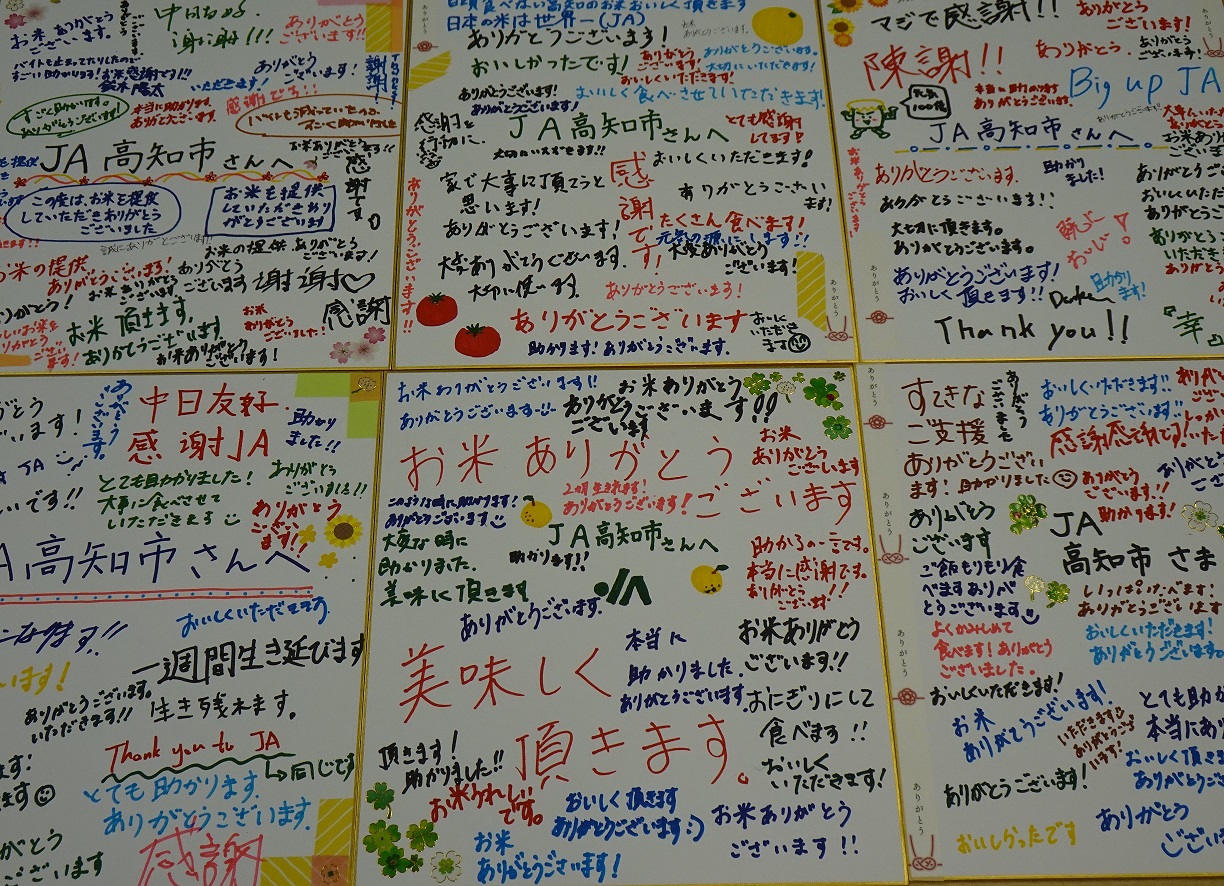 中日友好
謝謝!!!
ありがとう
ございます!!
お米ありがとう
ございます。
ありがとう
ございます!
いただきます!
感謝です!!
すごく助かります。
ありがとうございます!
本当に助かります。
ありがとうございます。
JA高知市さんへ
感謝です。
この度は、お米を提供
していただきありがとう
ございました
お米を提供
していただきあり
がとうございます
誠にありがとうございます!
お米の提供
ありがとうございます!
お米の提供 ありがとう
ございます!
ありがとう
ございます
謝謝♡
感謝
お米 頂きます。
ありがとうございます
お米
ありがとう
ございました!
お米ありがとう
ございます!
日本の米は世界一(JA)
ありがとうございます!
おいしかったです!
ありがとう
ございます!
おいしくいただきます!
ありがとうございます。
大切にいただきます!
ありがとうございます!
おいしく食べさせていただきます!
感謝を
行動に。
JA高知市さんへ
とても感謝
してます!
家で大事に頂てうと
思います!
感謝です!
おいしくいただきます!
ありがとうござい
ます!
ありがとうございます!
たくさん食べます!
元気の源にします!!
大変ありがとうございます。
大変ありがとう
ございます!
大切に使います。
ありがとうございます!
ありがとうございます!!
ありがとうございます
おいしく
いただき
ます
助かります!ありがとうございます。
ありがとう
マジで感謝!!
ありがとう
ございます!
陳謝!!
ありがとう。
ありがとう
ございます!
Big up JA
元気
100倍
本当に助かります
ありがとうございます。
JA高知市さんへ
ありがとうございます。
助かり
ました!
ありがとうございます!!
大切に頂きます。
ありがとうございます。
ありがとうございます!
おいしく頂きます!!
助かり
ます!
Thank you!!
『幸』
ありがとう
中日友好
感謝JA
助かり
ました!!
とても助かりました!
大事に食べさせて
いただきます
ありがとう
ございました!!
ありがとう
ございます!!
JA高知市さんへ
おいしくいただきます。
一週間生き延びます
ありがとうございます。
いただきます!!
生き残れます。
Thank you to JA
→同じです
とても助かります。
ありがとうございます。
感謝
お米ありがとうございます!!
お米ありがとう
ございます
ありがとうございます
ありがとうございます!!
お米 ありがとう
ございます
お米
ありがとう
ございます
このような時に助かります!
ありがとうございます
ありがとうございます!
大変な時に
助かりました。
JA高知市さんへ
助かります!!
美味しく頂きます
JA
助かるの一言です。
本当に感謝です。
ありがとう
ございます!
ありがとうございます。
美味しく
頂きます。
本当に
助かりました。
ありがとうございます。
お米ありがとう
ございます!!
おにぎりにして
食べます!
頂きます!
助かりました!!
おいしく
いただきます!
お米うれしい
です。
おいしく頂きます
ありがとうございます:)
お米
ありがとうございます!
お米ありがとう
ございます!!
ありがとう
すてきな
ご支援
ありがとうござい
ます!助かりました
ありがとう
ございました
おいしくいただきます!!
ありがとうございます!!
ありがとう
ございます!!
助かります!
ありがとう
ございます
JA
高知市さま
ご飯もりもり食
べます ありが
とうございます
いっぱい食べます!
ありがとうございます
よくかみしめて
食べます!ありがとう
ございました。
おいしくいただきます!
ありがとうございます。
おいしくいただきます!
お米
ありがとうございます!
いただきます
ありがとうござ
います!
とても助か
本当にあり
おいしく頂きま
ありがとうござ
ありがとうございます!
ありがとう
ござい
おいしかったです
ありがとう